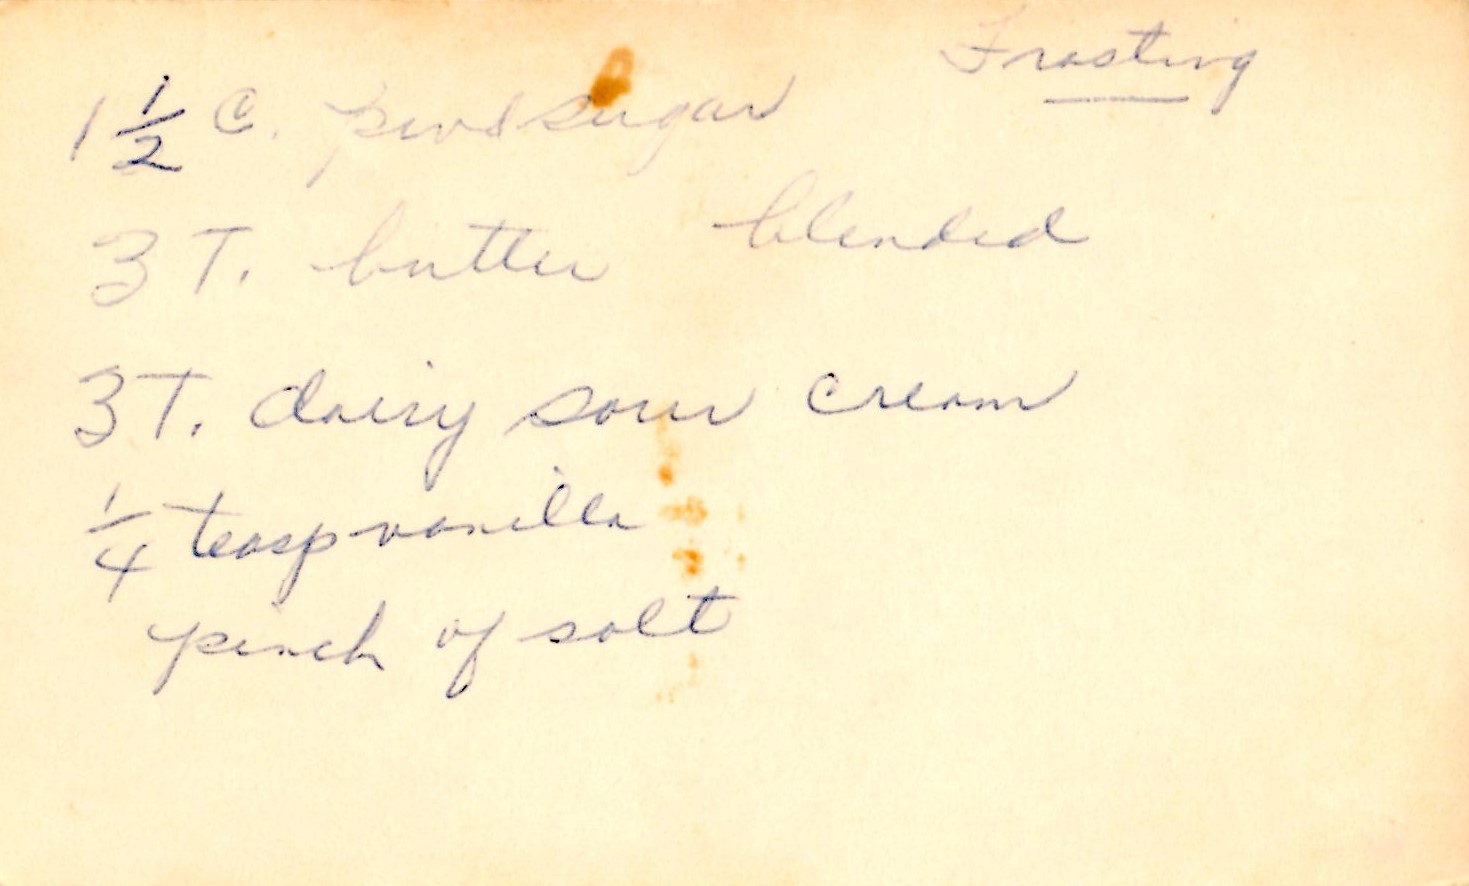 Frosting
1 1/2 C. pwd sugar
3 T. butter blended
3 T. dairy sour cream
1/4 teasp vanilla
pinch of salt